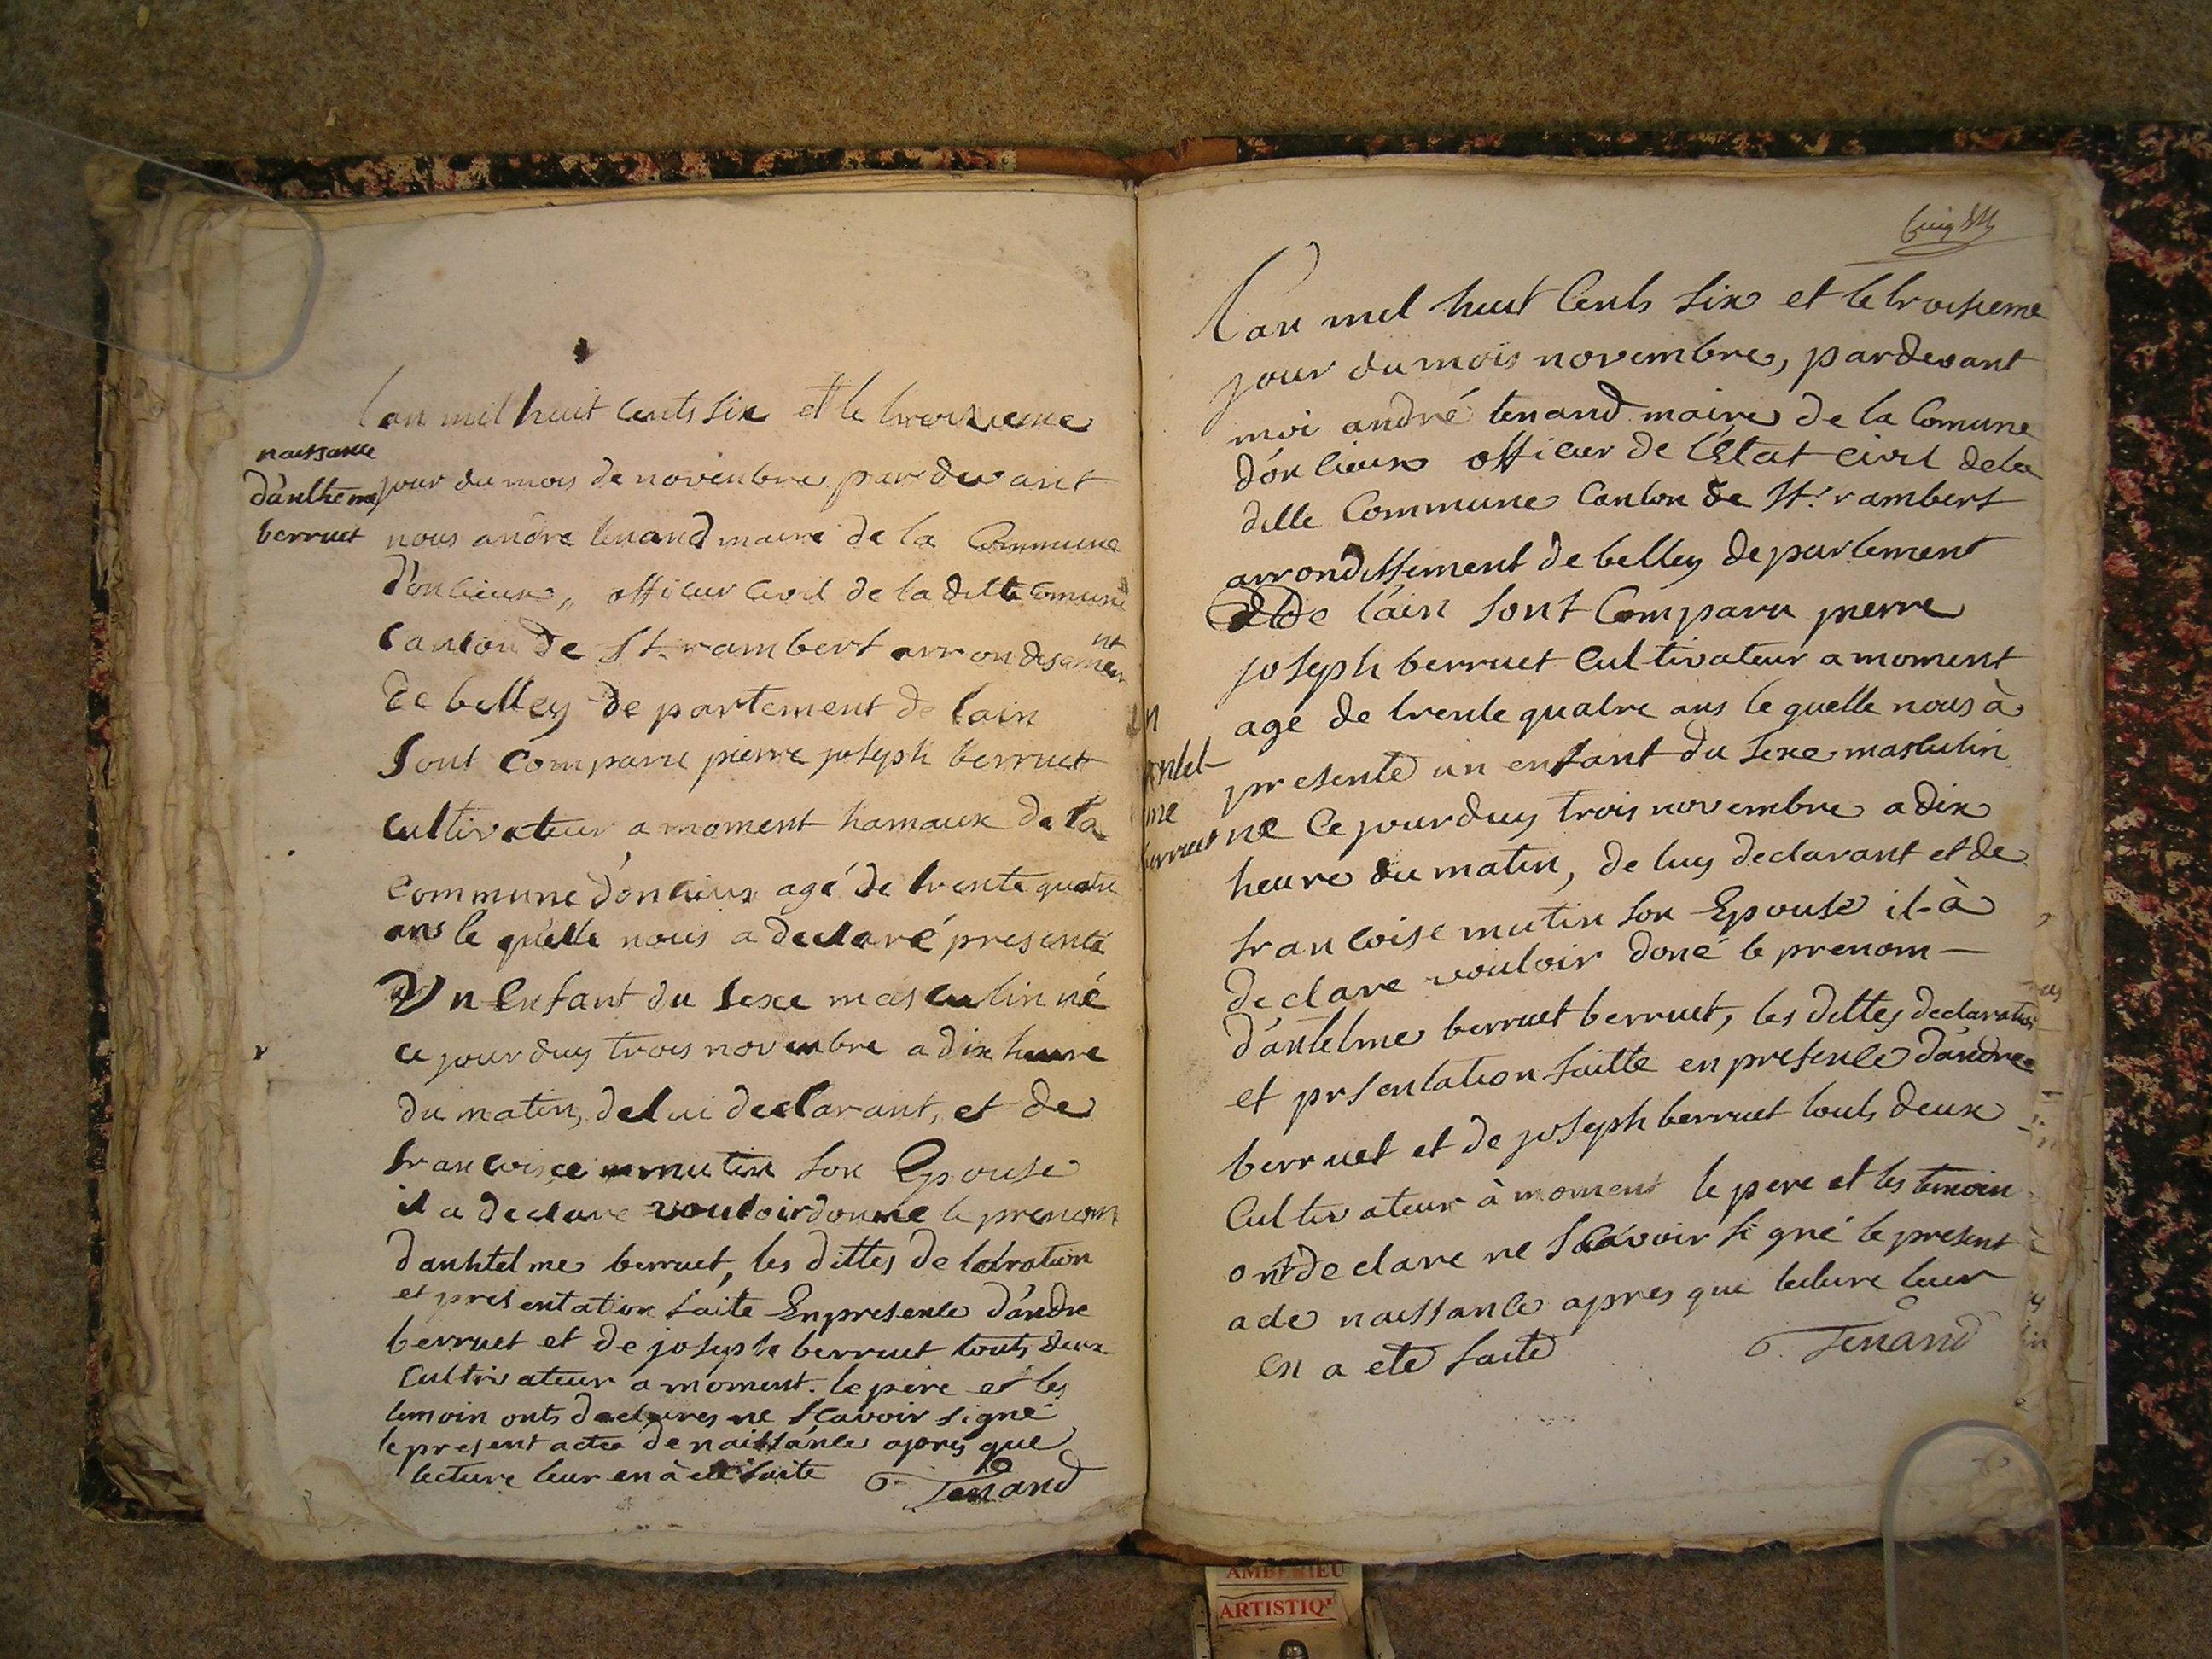 lan mil huit cents six et le troixieme
naissance
d'anthelme
berruet
jour du mois de novembre pardevant
nous andre tenand maire de la Commune
d'oncieux,, officier civil de la ditte Comune
Canton de St. rambert arrondisement
de belley departement de lain
Sont Comparu pierre joseph berruet
Cultivateur a moment hamaux de la
Commune d'oncieux agé de trente quatre
ans le quelle nous a declaré presenté
Un Enfant du Sexe masculin né
ce jourduy trois novembre a dix heure
du matin, de lui declarant, et de
francoise mutin son Epouse
il a declare vouloir donné le prenom
danhtelme berruet, les dittes de
et presentation faite En presence d'andre
berruet et de joseph berruet touts deux
Cultivateur a moment. le père et les
temoin onts declares ne scavoir signé
le present acte de naissance apres que
lecture leur en à eté faite Tenand
lan mil huit Cents Six et le troisieme
jour du mois novembre, pardevant
moi andré tenand maire de la Comune
d'oncieux officier de l'Etat civil dela
ditte Commune Canton de St. rambert
arrondissement de belley departement
de l'ain Sont Comparu pierre
joseph berruet Cultivateur a moment
age de trente quatre ans le quelle nous à
presenté un enfant du Sexe masculin
berruet
ne Ce jourduy trois novembre a dix
heure du matin, de luy declarant et de
francoise mutin son Epouse il-à
declare vouloir doné le prenom—
d'antelme berruet berruet, les dittes declaration
et prsentation faitte en presence d'andre
berruet et de joseph berruet touts deux
Cultivateur à moment le pere et les temoin
ont declare ne Scavoir Signé le present
acte naissance apres que lecture leur
en a eté faite Tenand
AMBERIEU
ARTISTIQ